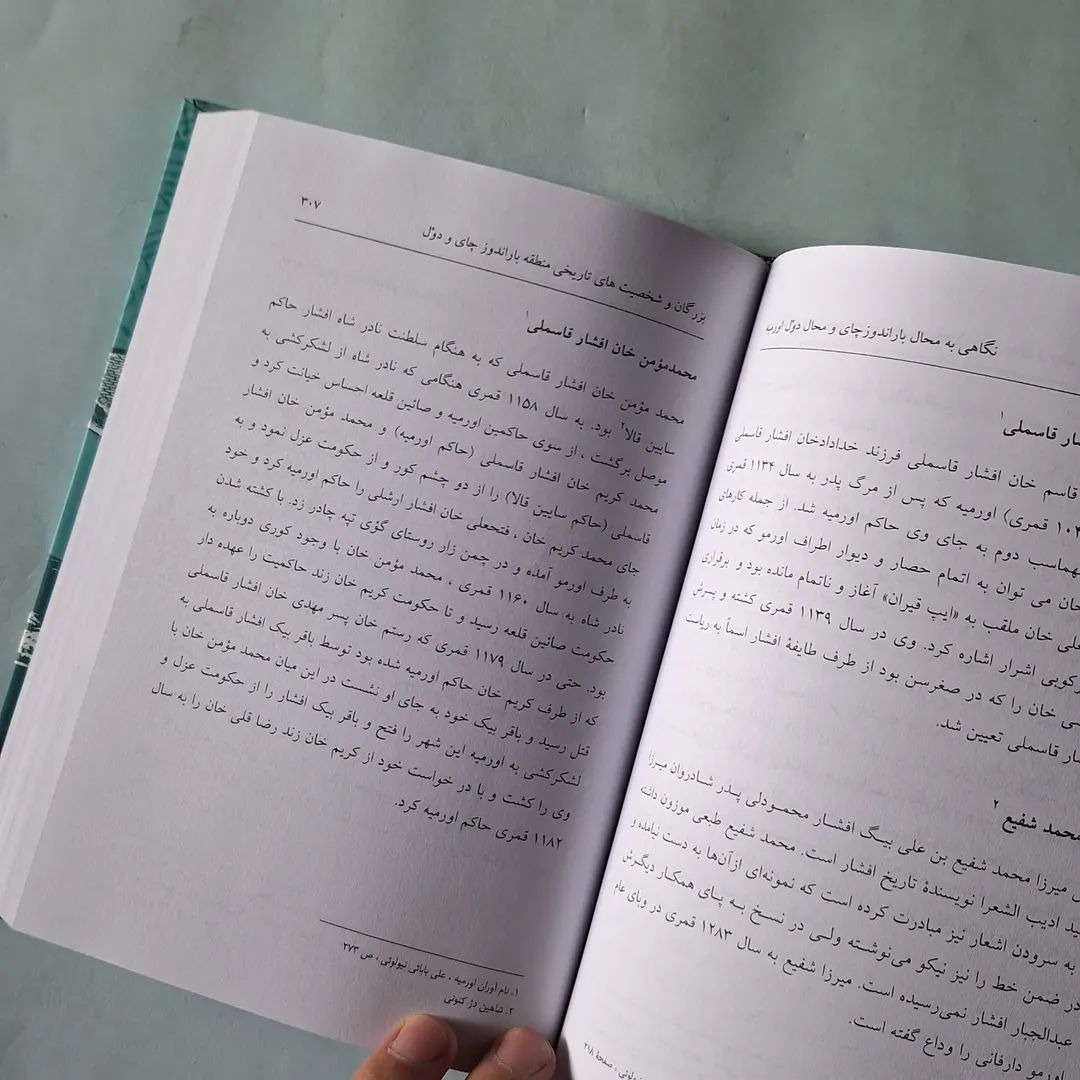 نگاهی به محال باراندوزچای و محال دوّل اورمیه
قاسملی۱
قاسم خان افشار قاسملی فرزند خدادادخان افشار قاسملی
قمری) اورمیه که پس از مرگ پدر به سال ۱۱۳۴ قمری
تهماسب دوم به جای وی حاکم اورمیه شد. از جمله کارهای
خان می توان به اتمام حصار و دیوار اطراف اورمو که در زمان
خان ملقب به «ایپ قیران» آغاز و ناتمام مانده بود و برقراری
اشرار اشاره کرد. وی در سال ۱۱۳۹ قمری کشته و پسرش
خان را که در صغرسن بود از طرف طایفهٔ افشار اسماً به ریاست
قاسملی تعیین شد.
محمد شفیع ۲
میرزا محمد شفیع بن علی بیگ افشار محمودلی پدر شادروان میرزا
ادیب الشعرا نویسندهٔ تاریخ افشار است. محمد شفیع طبعی موزون داشته
به سرودن اشعار نیز مبادرت کرده است که نمونه‌ای ازآن‌ها به دست نیامده و
در ضمن خط را نیز نیکو می‌نوشته ولی در نسخ به پای همکار دیگرش
عبدالجبار افشار نمی‌رسیده است. میرزا شفیع به سال ۱۲۸۳ قمری در وبای عام
اورمو دارفانی را وداع گفته است.
صفحهٔ ۲۱۸
بزرگان و شخصیت های تاریخی منطقه باراندوز چای و دوّل
۳۰۷
محمدمؤمن خان افشار قاسملی۱
محمد مؤمن خان افشار قاسملی که به هنگام سلطنت نادر شاه افشار حاکم
سایین قالا۲ بود. به سال ۱۱۵۸ قمری هنگامی که نادر شاه از لشکرکشی به
موصل برگشت ، از سوی حاکمین اورمیه و صائین قلعه احساس خیانت کرد و
محمد کریم خان افشار قاسملی (حاکم اورمیه) و محمد مؤمن خان افشار
قاسملی (حاکم سایین قالا) را از دو چشم کور و از حکومت عزل نمود و به
جای محمد کریم خان ، فتحعلی خان افشار ارشلی را حاکم اورمیه کرد و خود
به طرف اورمو آمده و در چمن زار روستای گؤی تپه چادر زد. با کشته شدن
نادر شاه به سال ۱۱۶۰ قمری ، محمد مؤمن خان با وجود کوری دوباره به
حکومت صائین قلعه رسید و تا حکومت کریم خان زند حاکمیت را عهده دار
بود. حتی در سال ۱۱۷۹ قمری که رستم خان پسر مهدی خان افشار قاسملی
که از طرف کریم خان حاکم اورمیه شده بود توسط باقر بیک افشار قاسملی به
قتل رسید و باقر بیک خود به جای او نشست در این میان محمد مؤمن خان با
لشکرکشی به اورمیه این شهر را فتح و باقر بیک افشار را از حکومت عزل و
وی را کشت و با در خواست خود از کریم خان زند رضا قلی خان را به سال
۱۱۸۲ قمری حاکم اورمیه کرد.
۱. نام آوران اورمیه ، علی بابائی نیولوئی ، ص ۲۷۳
۲. شاهین دژ کنونی